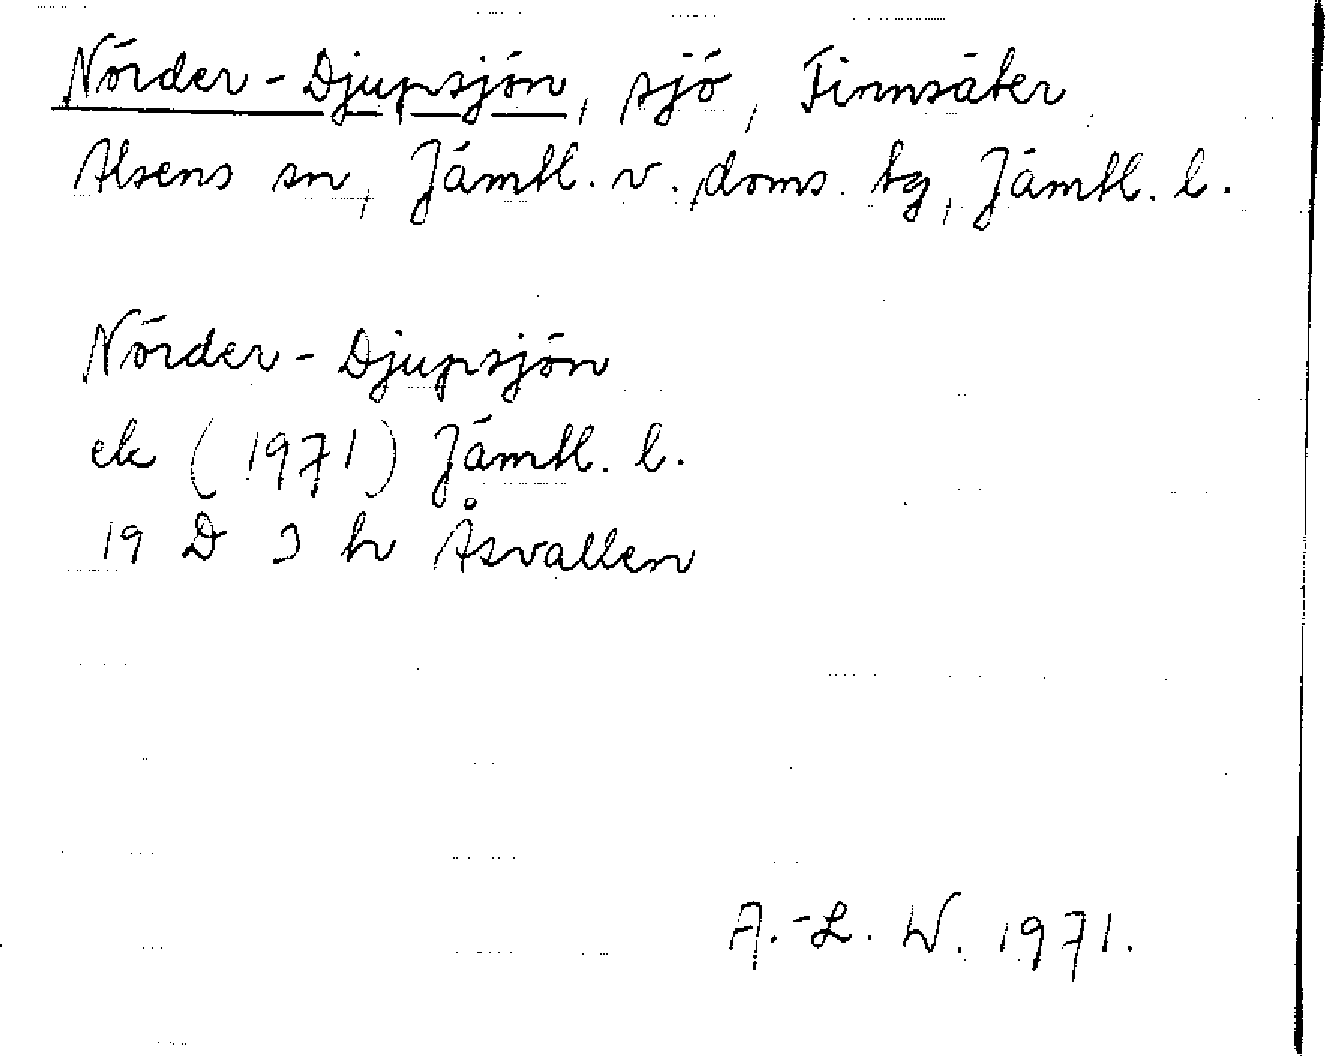 Nörder-Djupsjön, sjö, Finnsäter
Alsens sn, Jämtl. v. doms. tg, Jämtl. l.
Nörder-Djupsjön
ek (1971) Jämtl. l.
19 D 3 h Åsvallen
A.-L. W. 1971.